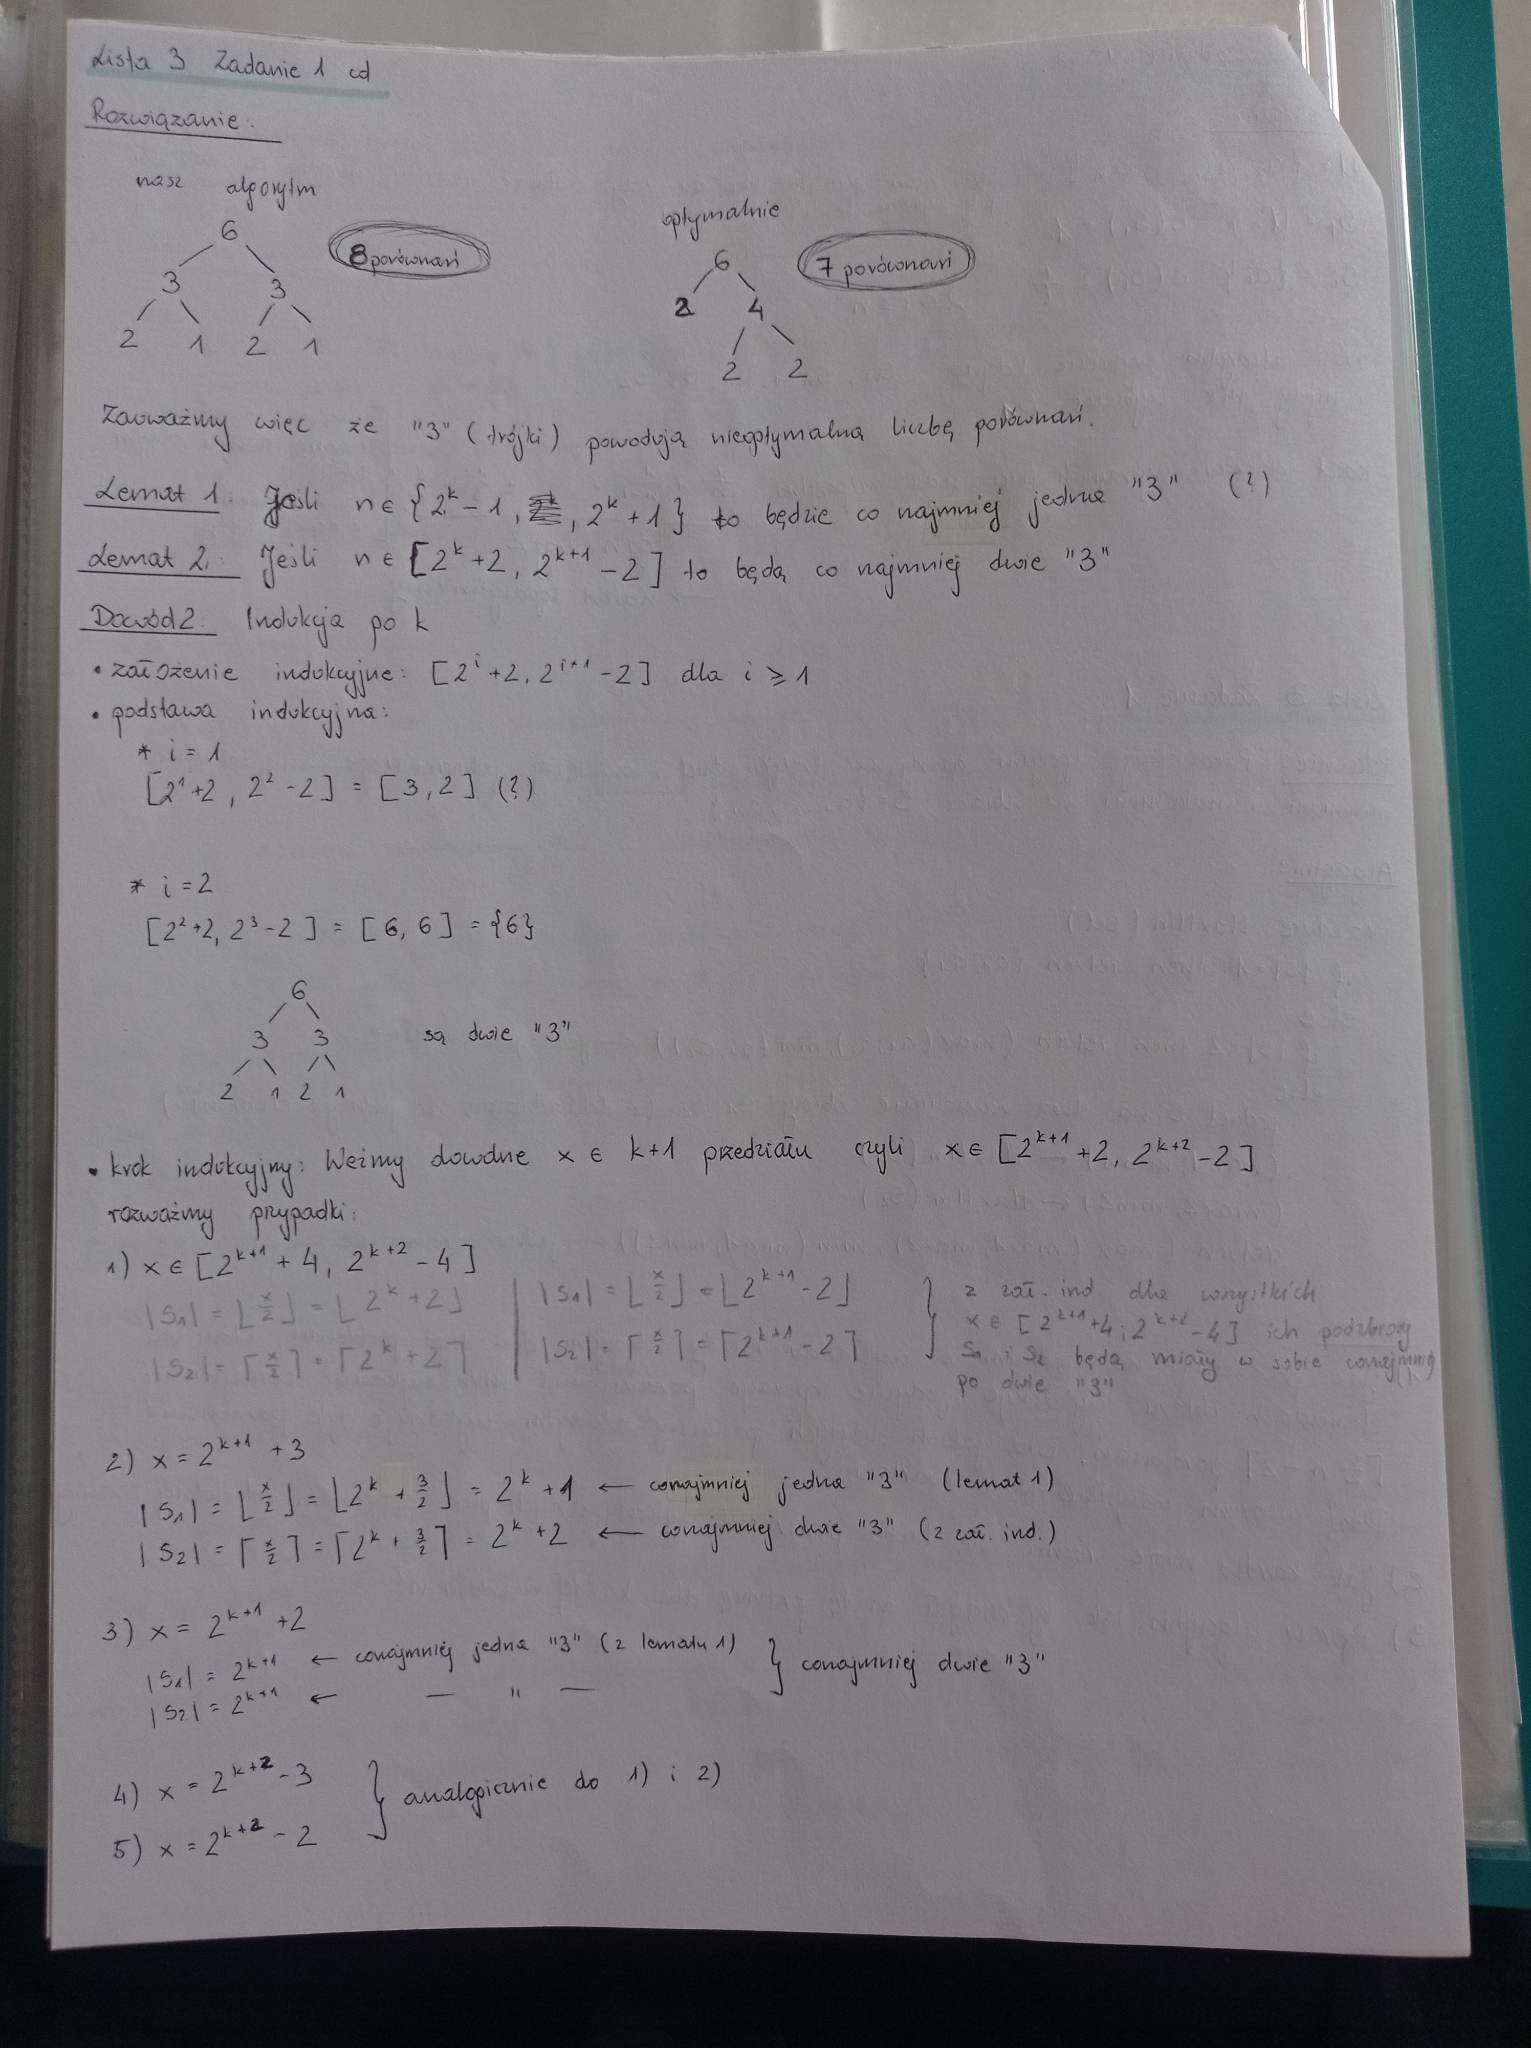 Lista 3 Zadanie 1 cd
Rozwiązanie:
nasz algorytm
6
8 porównań
3 3
2 1 2 1
optymalnie
6
7 porównań
2 4
2 2
Zauważmy więc że "3" (trójki) powodują nieoptymalną liczbę porównań.
Lemat 1. Jeśli n ∈ {2^k - 1, , 2^k + 1} to będzie co najmniej jedna "3" (?)
Lemat 2. Jeśli n ∈ [2^k + 2, 2^{k+1} - 2] to będą co najmniej dwie "3"
Dowód 2. Indukcja po k
• założenie indukcyjne: [2^i + 2, 2^{i+1} - 2] dla i ⩾ 1
• podstawa indukcyjna:
* i = 1
[2^1 + 2, 2^2 - 2] = [3, 2] (?)
* i = 2
[2^2 + 2, 2^3 - 2] = [6, 6] = {6}
6
3 3
2 1 2 1
są dwie "3"
• krok indukcyjny: Weźmy dowolne x ∈ k+1 przedziału czyli x ∈ [2^{k+1} + 2, 2^{k+2} - 2]
rozważmy przypadki:
1) x ∈ [2^{k+1} + 4, 2^{k+2} - 4]
|S1| = ⌊x/2⌋ = ⌊2^k + 2⌋ | |S1| = ⌊x/2⌋ = ⌊2^{k+1} - 2⌋
|S2| = ⌈x/2⌉ = ⌈2^k + 2⌉ | |S2| = ⌈x/2⌉ = ⌈2^{k+1} - 2⌉
} z zał. ind dla wszystkich
x ∈ [2^{k+1} + 4; 2^{k+2} - 4] ich podzbiory
S1 i S2 będą miały w sobie conajmniej
po dwie "3"
2) x = 2^{k+1} + 3
|S1| = ⌊x/2⌋ = ⌊2^k + 3/2⌋ = 2^k + 1 ← conajmniej jedna "3" (lemat 1)
|S2| = ⌈x/2⌉ = ⌈2^k + 3/2⌉ = 2^k + 2 ← conajmniej dwie "3" (z zał. ind.)
3) x = 2^{k+1} + 2
|S1| = 2^{k+1} ← conajmniej jedna "3" (z lematu 1)
|S2| = 2^{k+1} ← — " —
} conajmniej dwie "3"
4) x = 2^{k+2} - 3
5) x = 2^{k+2} - 2
} analogicznie do 1) i 2)